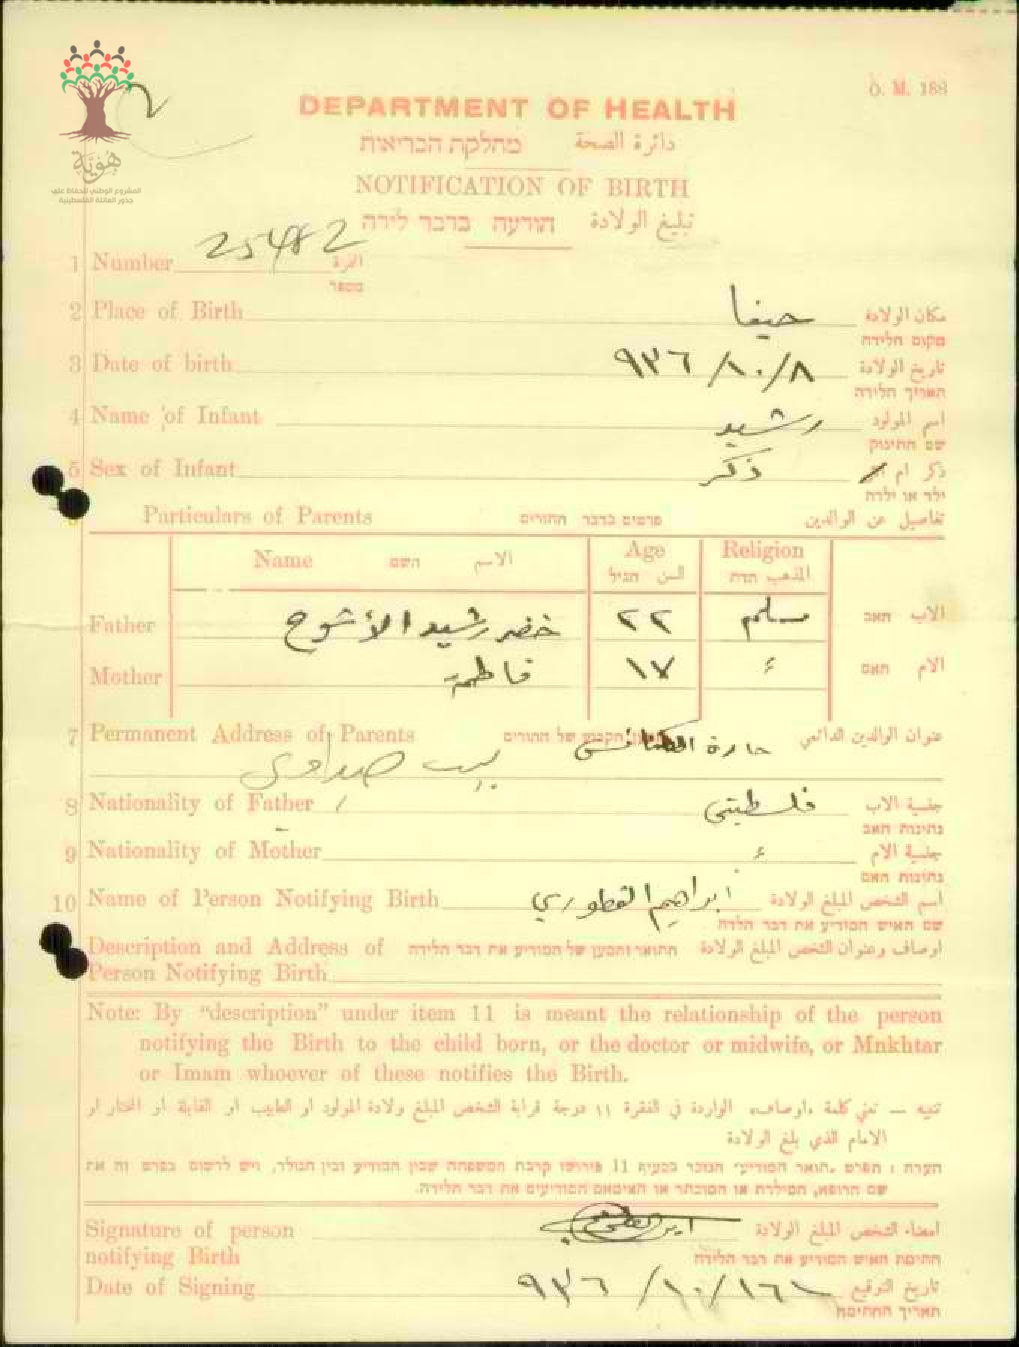 هُويَّة
المشروع الوطني للحفاظ على
جذور العائلة الفلسطينية
2
O. M. 188
DEPARTMENT OF HEALTH
מחלקת הבריאות دائرة الصحة
NOTIFICATION OF BIRTH
הודעה בדבר לידה تبليغ الولادة
1 Number 25482 النمرة
מספר
2 Place of Birth حيفا مكان الولادة
מקום הלידה
3 Date of birth ٨/١٠/٩٣٦ تاريخ الولادة
תאריך הלידה
4 Name of Infant رشيد اسم المولود
שם התינוק
5 Sex of Infant ذكر ذكر ام
ילד או ילדה
Particulars of Parents פרטים בדבר ההורים تفاصيل عن الوالدين
Name השם الاسم Age Religion
הגיל السن הדת المذهب
Father خضر رشيد الأشوح ٢٢ مسلم الاب האב
Mother فاطمة ١٧ ء الام האם
7 Permanent Address of Parents של ההורים حارة الكنائس عنوان الوالدين الدائمي
بيت صداوي
8 Nationality of Father فلسطيني جنسية الاب
נתינות האב
9 Nationality of Mother ء جنسية الام
נתינות האם
10 Name of Person Notifying Birth ابراهيم القطوري اسم الشخص المبلغ الولادة
שם האיש המודיע את דבר הלדה
Description and Address of התואר והמען של המודיע את דבר הלידה اوصاف وعنوان الشخص المبلغ الولادة
Person Notifying Birth
Note: By “description” under item 11 is meant the relationship of the person
notifying the Birth to the child born, or the doctor or midwife, or Mnkhtar
or Imam whoever of these notifies the Birth.
تنبيه — تعني كلمة «اوصاف» الواردة في الفقرة ١١ درجة قرابة الشخص المبلغ ولادة المولود او الطبيب او القابلة او المختار او
الامام الذي بلغ الولادة
הערה : הפרט „תואר המודיע״ הנזכר בסעיף 11 פירושו קרבת המשפחה שבין המודיע ובין הנולד, ויש לרשום בפרט זה את
שם הרופא, המילדת או המוכתר או האימאם המודיעים את דבר הלידה.
Signature of person امضاء الشخص المبلغ الولادة
notifying Birth חתימת האיש המודיע את דבר הלידה
Date of Signing ١٦/١٠/٩٣٦ تاريخ التوقيع
תאריך החתימה